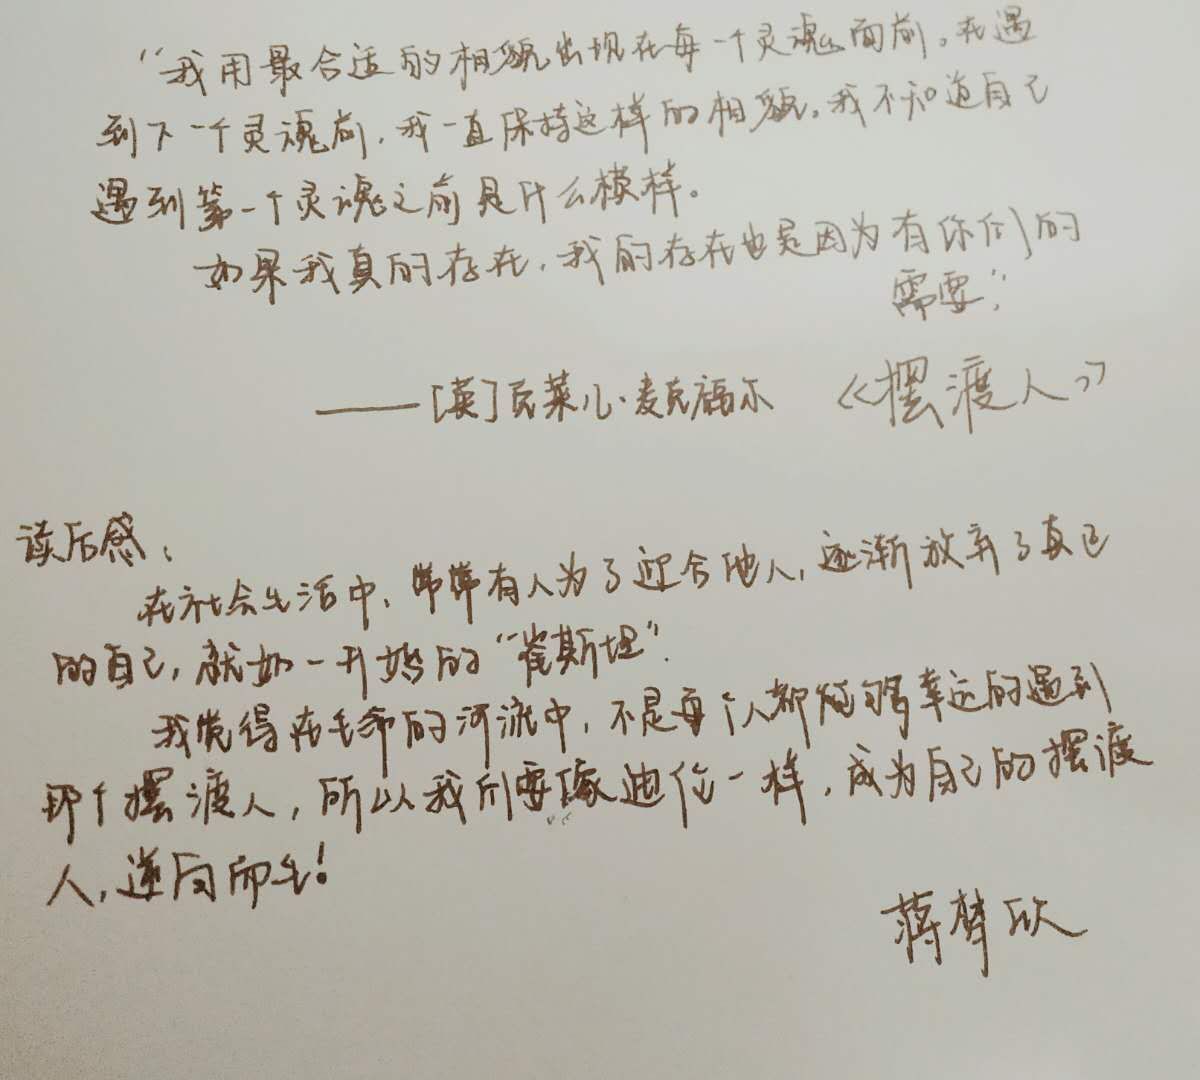 “我用最合适的相貌出现在每一个灵魂面前。在遇
到下一个灵魂前，我一直保持这样的相貌。我不知道自己
遇到第一个灵魂之前是什么模样。
如果我真的存在，我的存在也是因为有你们的
需要。”
——[英]克莱儿·麦克福尔 《摆渡人》
读后感：
在社会生活中，常常有人为了迎合他人，逐渐放弃了真正
的自己，就如一开始的“崔斯坦”.
我觉得在生命的河流中，不是每个人都能够幸运的遇到
那个摆渡人，所以我们要像迪伦一样，成为自己的摆渡
人，逆向而生！
蒋梦欣